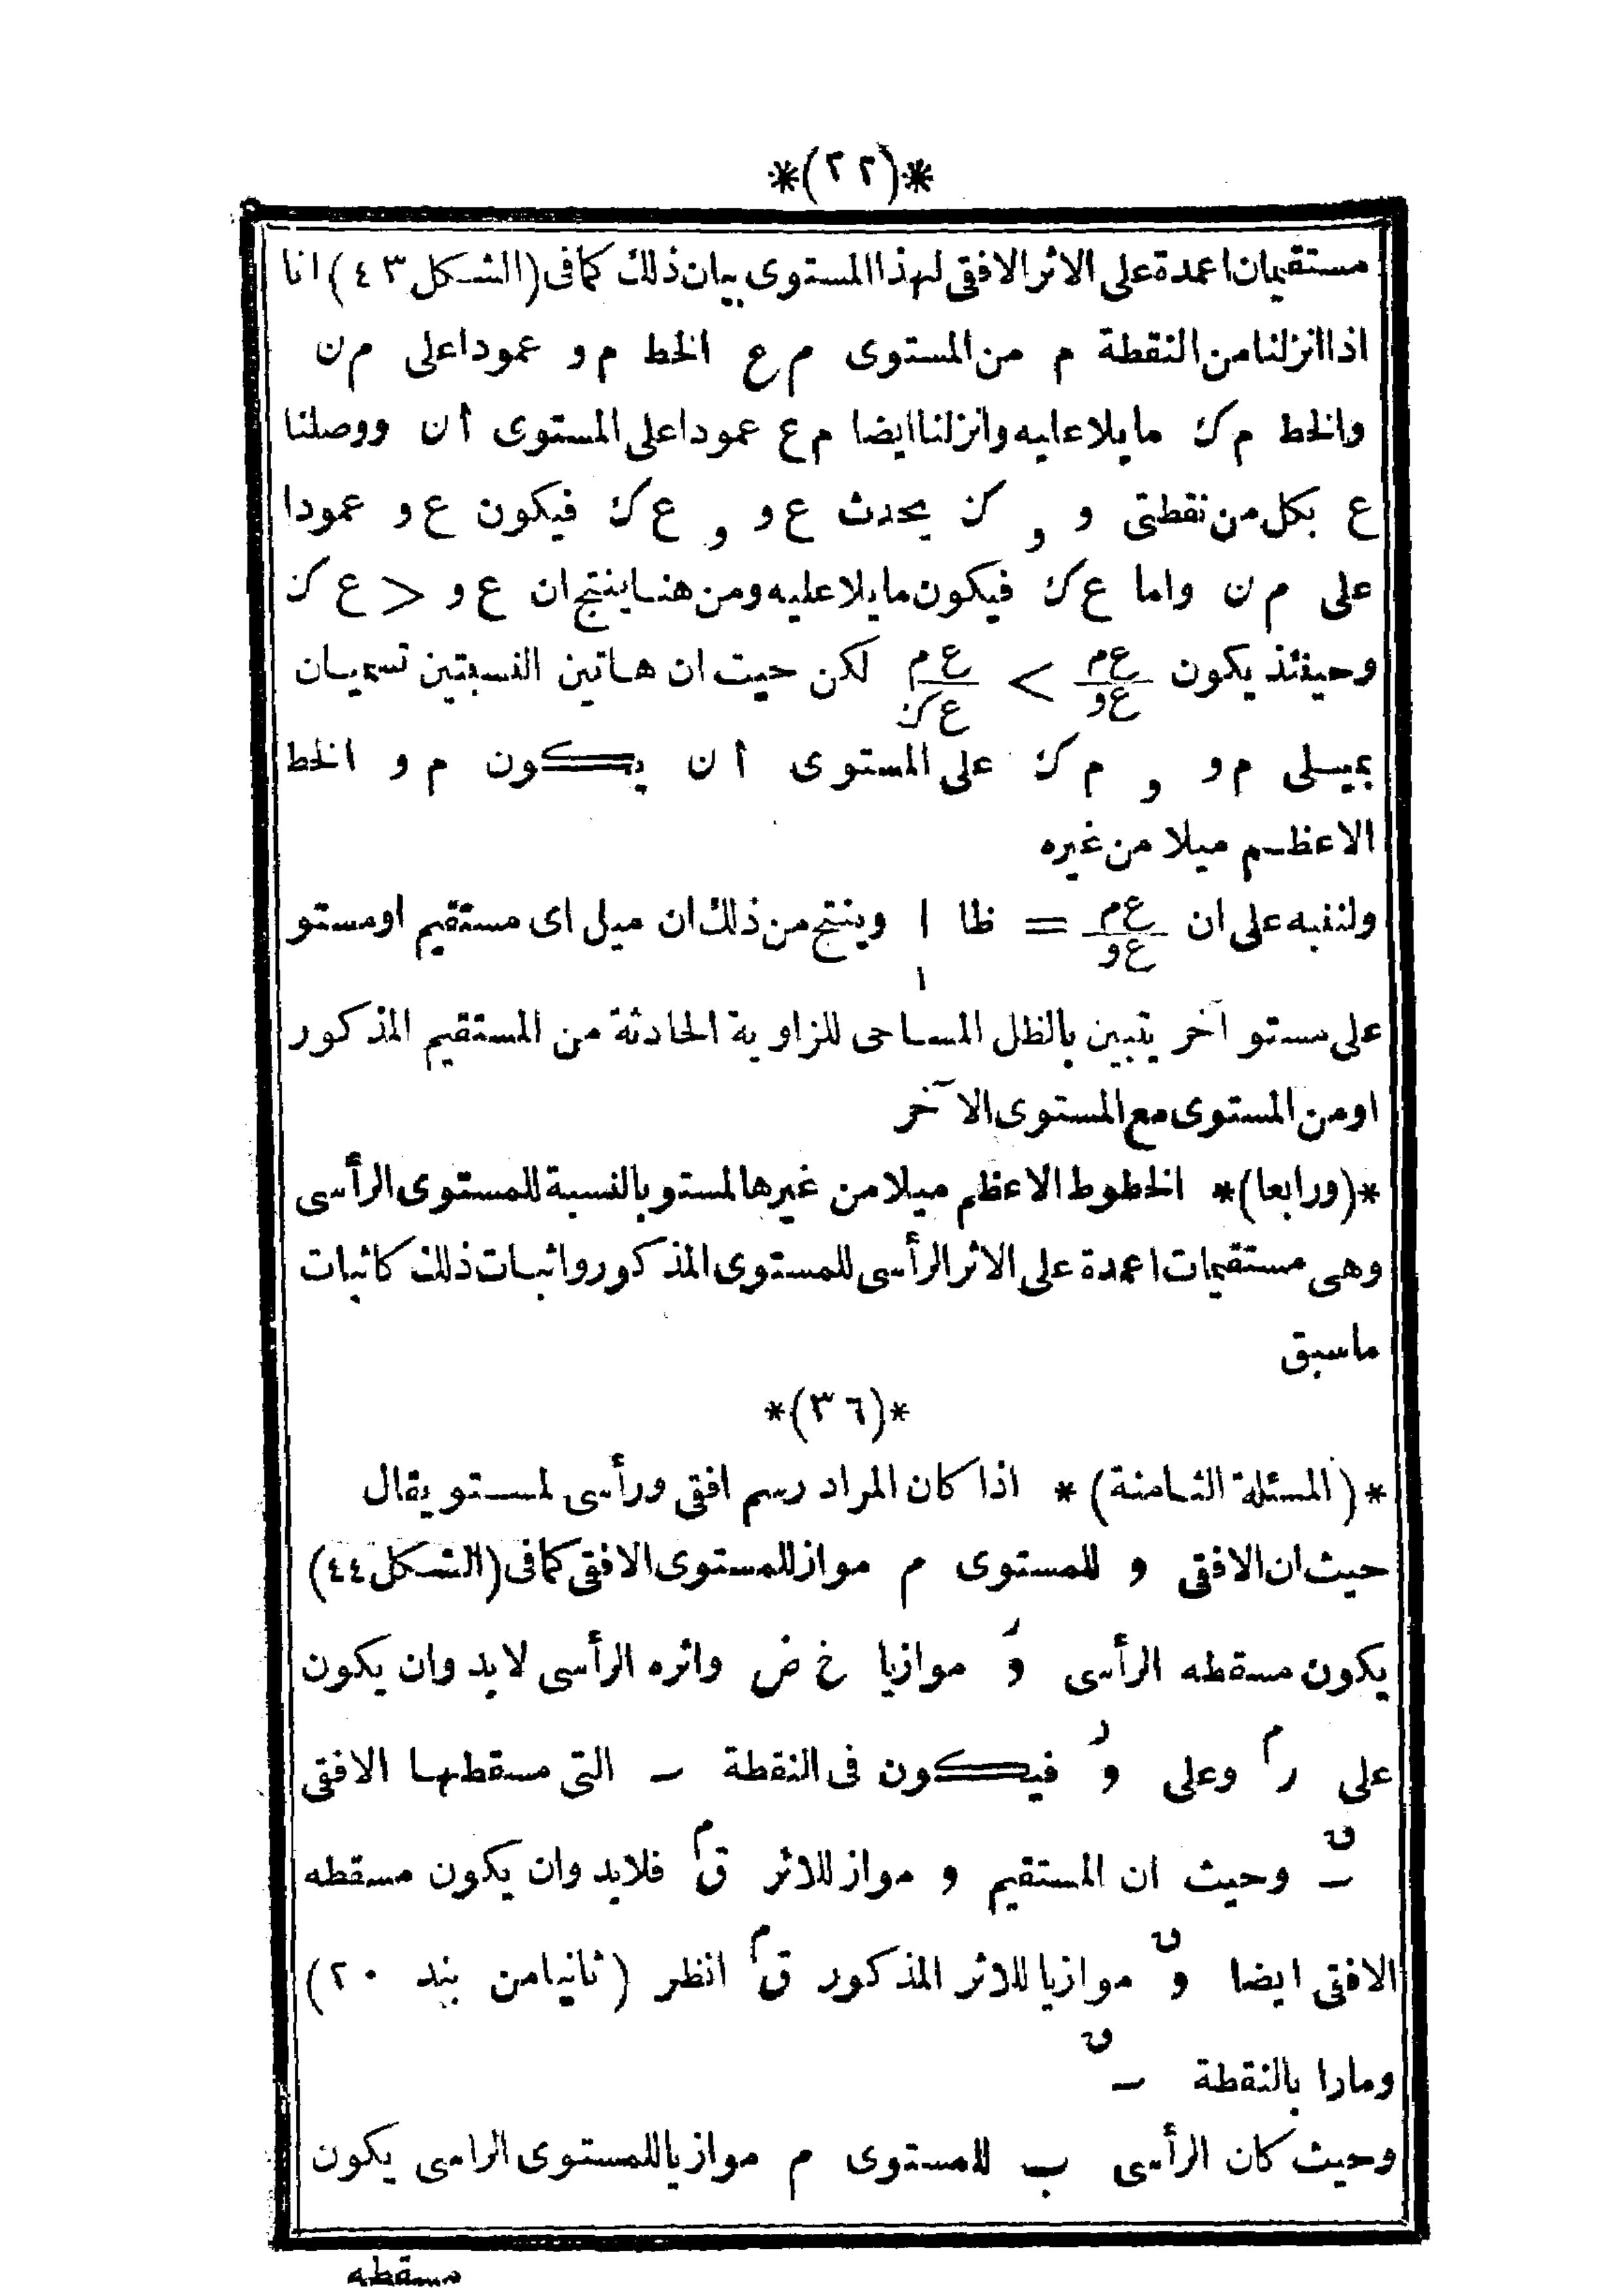 *(٢٢)*
مستقيمان اعمدة على الاثر الافقى لهذا المستوى بيان ذلك كمافى (الشكل ٤٣) انا
اذا انزلنا من النقطة م من المستوى م ع الخط م و عمودا على م ن
والخط م ك مايلا عليه وانزلنا ايضا م ع عمودا على المستوى أ ن ووصلنا
ع بكل من نقطتى و , ك يحدث ع و , ع ك فيكون ع و عمودا
على م ن واما ع ك فيكون مايلا عليه ومن هنا ينتج ان ع و < ع ك
وحينئذ يكون ع م / ع و > ع م / ع ك لكن حيت ان هاتين النسبتين تسميان
بميلى م و , م ك على المستوى أ ن يكون م و الخط
الاعظم ميلا من غيره
ولننبه على ان ع م / ع و = ظا ا / ١ وينتج من ذلك ان ميل اى مستقيم او مستو
على مستو آخر يتبين بالظل المساحى للزاوية الحادثة من المستقيم المذكور
او من المستوى مع المستوى الآخر
*(ورابعا)* الخطوط الاعظم ميلا من غيرها لمستو بالنسبة للمستوى الرأسى
وهى مستقيمات اعمدة على الاثر الرأسى للمستوى المذكور واثبات ذلك كاثبات
ماسبق
*(٣٦)*
*(المسئلة الثامنة)* اذا كان المراد رسم افقى ورأسى لمستو يقال
حيث ان الافقى و للمستوى م مواز للمستوى الافقى كمافى (الشكل ٤٤)
يكون مسقطه الرأسى وَر موازيا خ ض واثره الرأسى لابد وان يكون
على رَم وعلى وَر فيكون فى النقطة ـ التى مسقطها الافقى
ـق وحيث ان المستقيم و مواز للاثر قَم فلابد وان يكون مسقطه
الافقى ايضا وق موازيا للاثر المذكور قَم انظر (ثانيا من بند ٢٠)
ومارا بالنقطة ـق
وحيث كان الرأسى ب للمستوى م موازيا للمستوى الراسى يكون
مسقطه